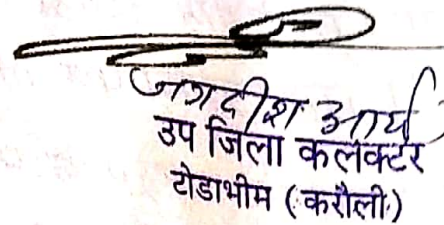 जगदीश आर्य
उप जिला कलक्टर
टोडाभीम (करौली)